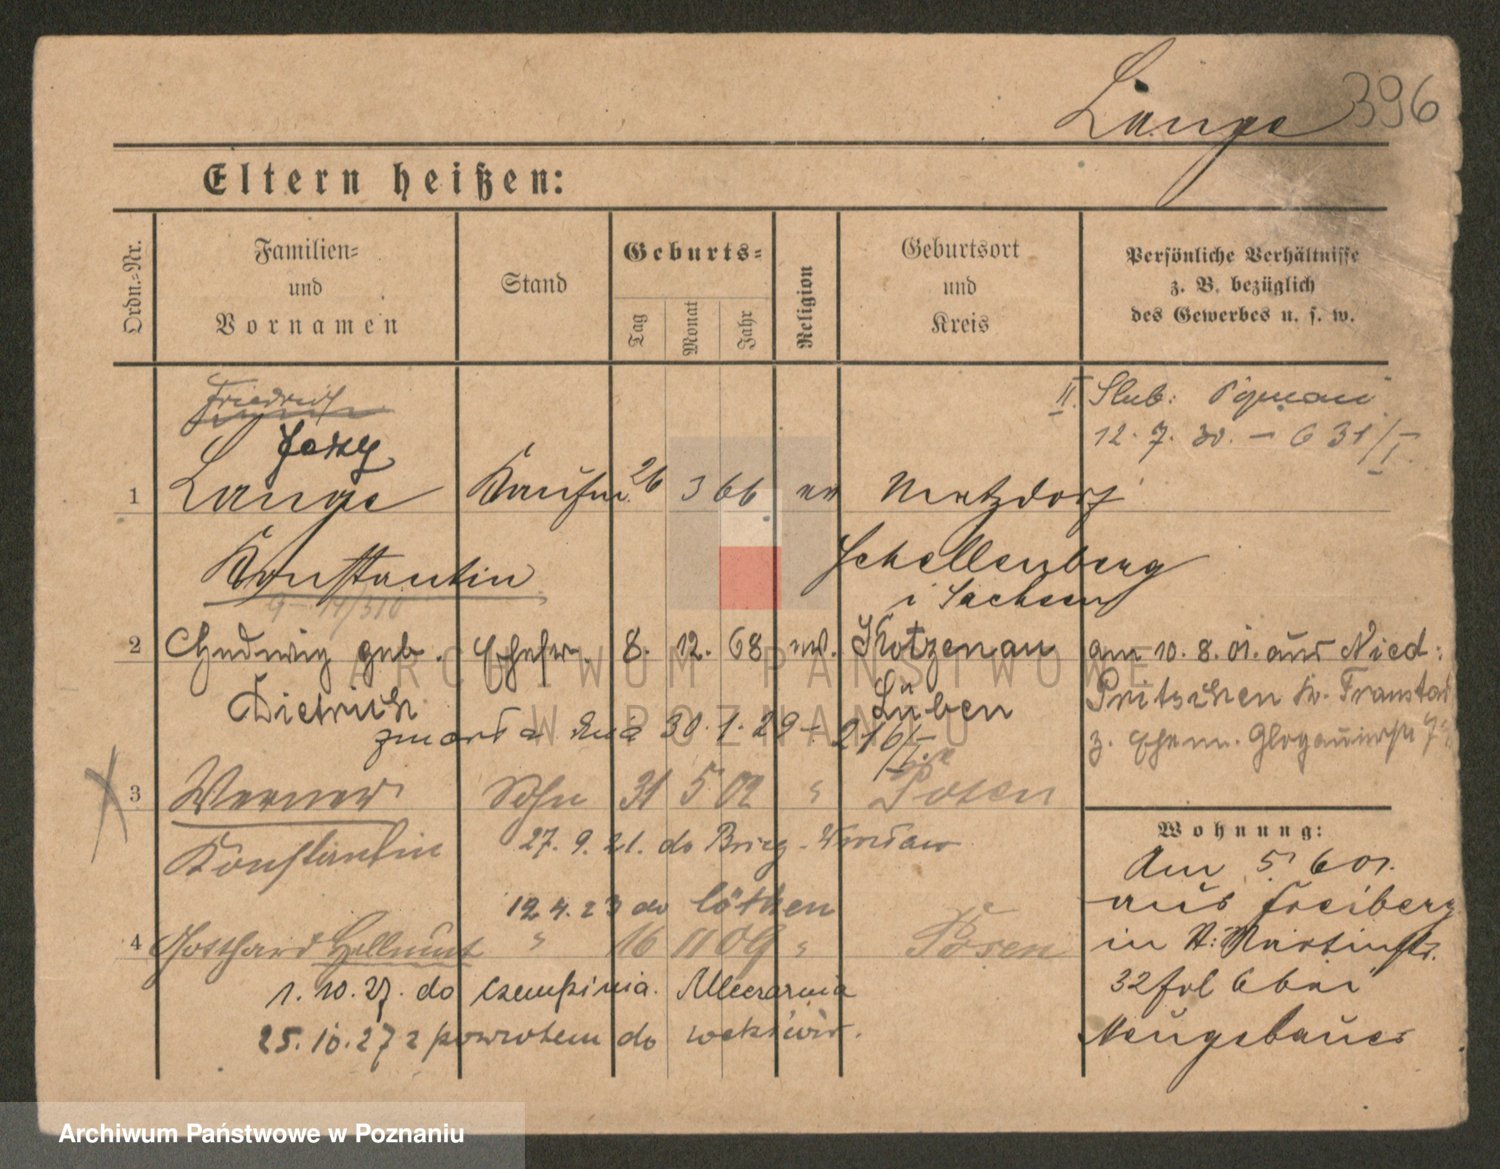 Lange 396
Eltern heißen:
Ordn.-Nr.
Familien-
und
Vornamen
Stand
Geburts-
Tag
Monat
Jahr
Religion
Geburtsort
und
Kreis
Persönliche Verhältnisse
z. B. bezüglich
des Gewerbes u. s. w.
Friedrich
II. Slub: Poznań
12. 7. 30. – 631/I
1 Lange Kaufm. 26 3 66 ev Metzdorf
Konstantin Schellenberg
i Sachsen
2 Hedwig geb. Ehefr. 8. 12. 68 ev. Kotzenau
Dietrich Lüben
am 10. 8. 01. aus Nied:
Pritschen Kr. Fraustadt
z. Ehem. Glogauerstr
zmarła dnia 30. 1. 29 – 216/I
3 Werner Sohn 31 5 02 " Posen
Konstantin 27. 9. 21. do Brieg - Wrocław
12 4. 23 do Cöthen
4 Gotthard Hellmut " 16 11 09 " Posen
1. 10. 27. do Czempinia. Mleczarnia
25. 10. 27 z powrotem do
Wohnung:
Am 5 6 01.
aus Freiberg
in St: Martinstr.
32 bei
Neugebauer
ARCHIWUM PAŃSTWOWE
W POZNANIU
Archiwum Państwowe w Poznaniu